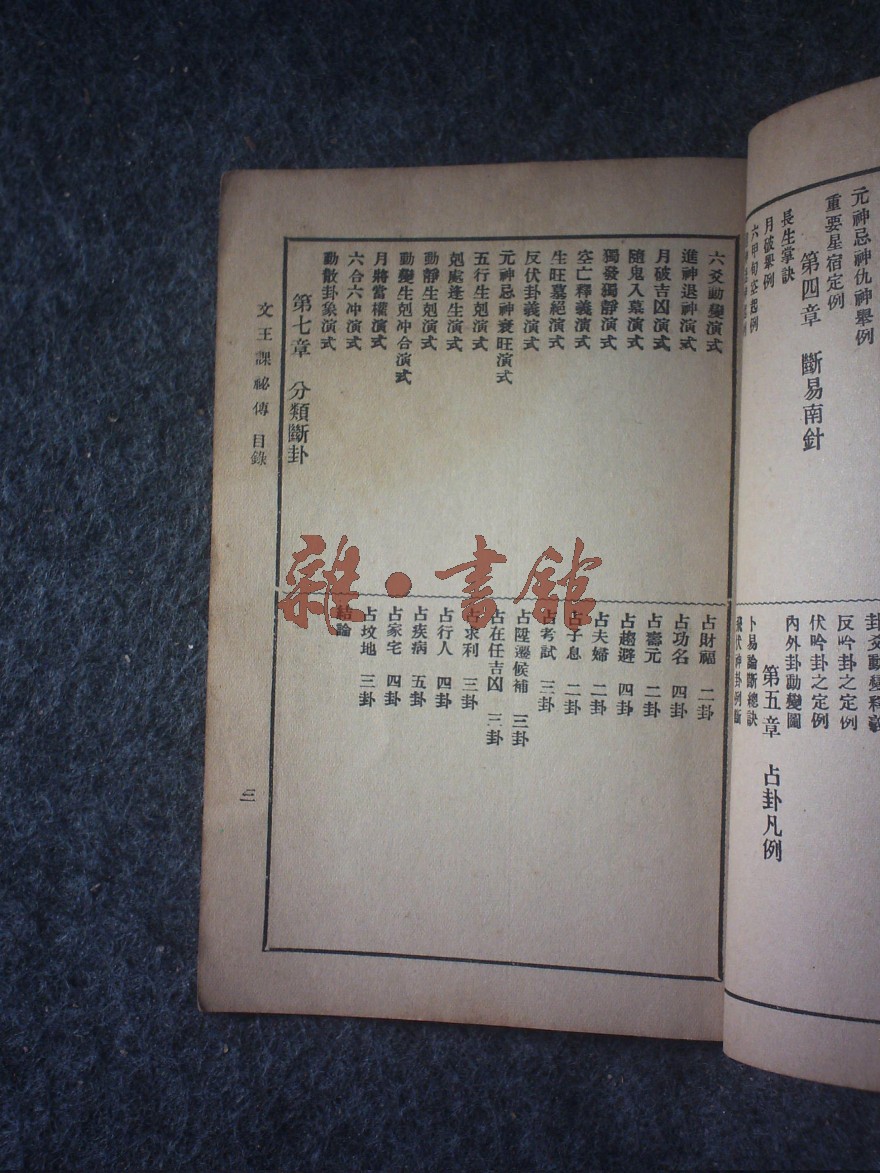 元神忌神仇神舉例
重要星宿定例
第四章　斷易南針
長生掌訣
月破舉例
六甲旬空起例
卦爻動變釋義
反吟卦之定例
伏吟卦之定例
內外卦動變圖
第五章　占卦凡例
卜易論斷總訣
六爻動變演式
進神退神演式
月破吉凶演式
隨鬼入墓演式
獨發獨靜演式
空亡釋義演式
生旺墓絕演式
反伏卦義演式
元神忌神衰旺演式
五行生剋演式
剋處逢生演式
動靜生剋演式
動變生剋冲合演式
月將當權演式
六合六冲演式
動散卦象演式
第七章　分類斷卦
占財福　二卦
占功名　四卦
占壽元　二卦
占趨避　四卦
占夫婦　二卦
占子息　二卦
占考試　三卦
占陞遷候補　三卦
占在任吉凶　三卦
占求利　三卦
占行人　四卦
占疾病　五卦
占家宅　四卦
占坟地　三卦
結論
文王課祕傳　目錄
三
雜·書館